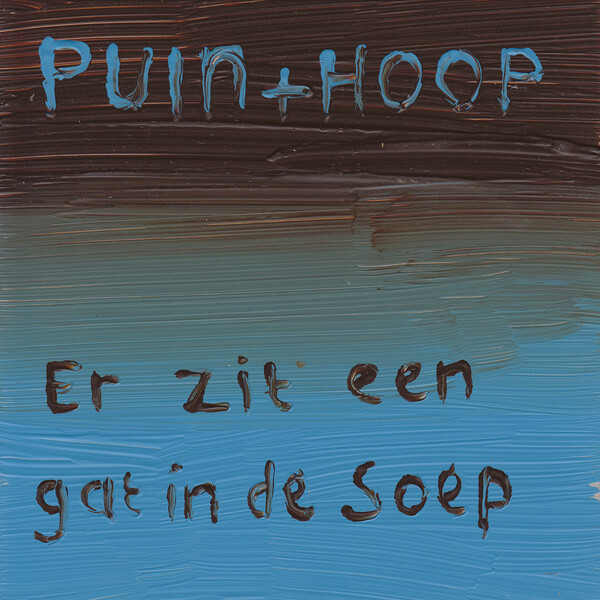 PUIn + HOOP
Er zit een
gat in de Soep